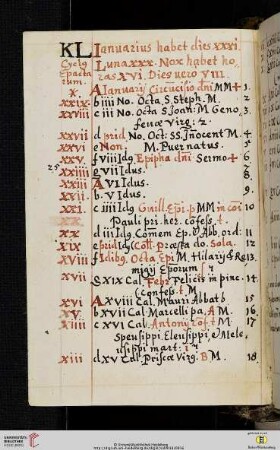 KL Ianuarius habet dies xxxi.
Cyclꝰ Luna xxx. Nox habet ho,
Epacta ras xvi. Dies uero viii
rum.
x. A Ianuarij Circūcisio dn̄i MM + 1.
xxix b iiii No. Octa S. Steph. M. 2.
xxviii c iii No. Octa S Ioan: M. Geno 3.
fenæ virg: 2.
xxvii d prid No. Oct: SS. Inocent M. 4.
xxvi e Non. M. 5.
xxv. f viii Idg Epipha dn̄i Sermo + 6.
xxiiii g vii Idus. 7.
xxiii A vi Idus. 8.
xxii. b v. Idus. 9.
xxi. c iiii Idg Guill. Epi. MM 10.
Pauli pri. her. cōfess. t.
xx d iii Idg Cōmem Ep. Abb. ord: 11.
xix e prid Idg sola. 12.
xviii f Idibg. Octa Epi M. Hilarij & Re, 13.
migij Eporum
xvii g xix Cal. Febr. Felicis in pinc. 14.
Confess. t. M
xvi A xviii Cal. Mauri Abbatis 15.
xv. b xvii Cal Marcelli pa. A M. 16.
xiiii c xvi Cal. Antonij M 17.
Speusippi, Eleusippi, & Mele,
usippi mart:
xiii d xv Cal. Priscæ Virg. B M. 18.